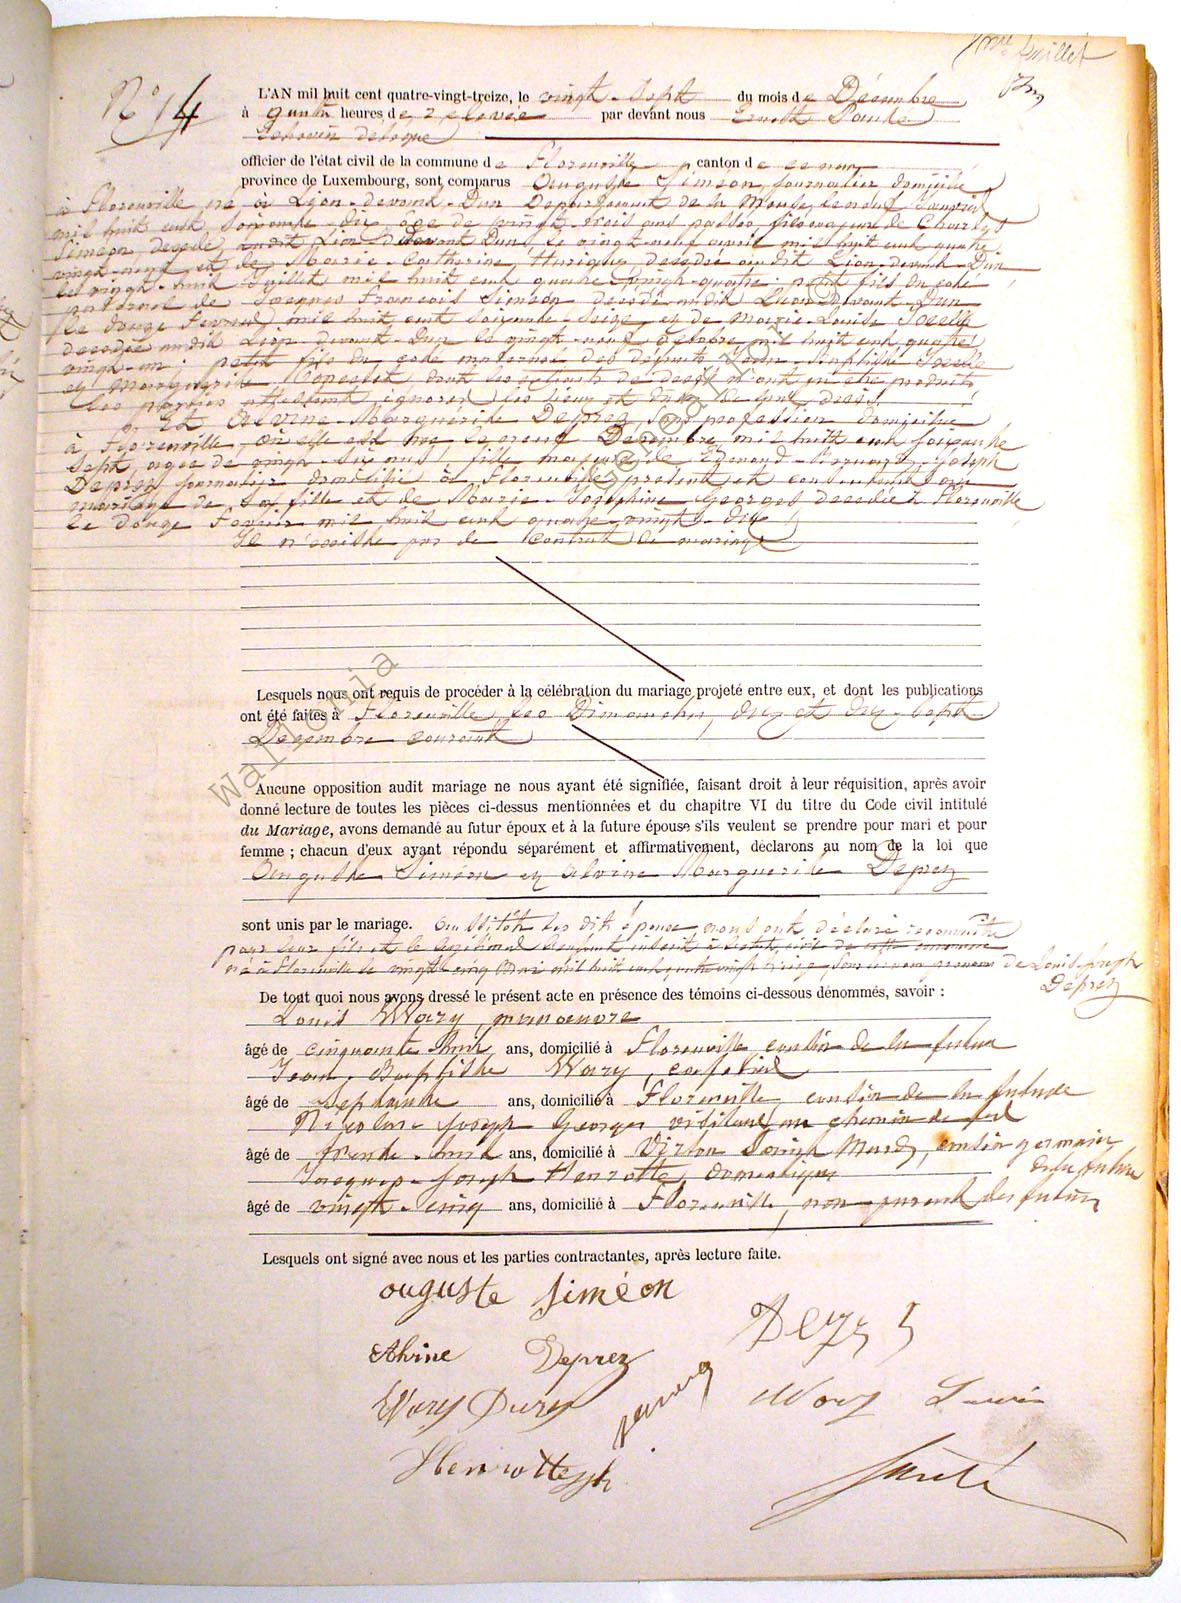 feuillet
N° 14
L'AN mil huit cent quatre-vingt-treize, le vingt-sept du mois de Décembre
à quatre heures de relevée par devant nous Ernest
échevin délégué
officier de l'état civil de la commune de Florenville, canton de
province de Luxembourg, sont comparus Auguste Siméon, journalier domicilié
à Florenville né à Lion-devant-Dun Département de la Meuse, le neuf Janvier
mil huit cent soixante dix âgé de vingt-trois ans passés, fils majeur de Charles
Siméon décédé audit Lion devant Dun le vingt-neuf avril mil huit cent quatre
vingt-neuf et de Marie-Catherine décédée audit Lion-devant-Dun
le vingt-huit Juillet mil huit cent quatre-vingt-quatre; petit fils du côté
paternel de Jeannes François Siméon décédé audit Lion devant-Dun
le douze Fevrier mil huit cent soixante-seize, et de Marie-Louise
décédée audit Lion devant-Dun le vingt-neuf octobre mil huit cent quatre
vingt-un; petit fils du côté maternel des défunts Jean-Baptiste
et Marguerite dont les extraits de décès n'ont pu être produits
les parties attestant ignorer les lieux et de leurs décès.
Et Alvine Marguérite Deprez, sans profession domiciliée
à Florenville, où elle est née le neuf Décembre mil huit cent soixante
sept, agée de vingt-six ans, fille majeure de Edouard Joseph
Deprez journalier domicilié à Florenville présent et consentant au
mariage de sa fille et de Marie-Joséphine Georges décédée à Florenville
le douze Fevrier mil huit cent quatre-vingt-dix
Il n'existe pas de contrat de mariage
Lesquels nous ont requis de procéder à la célébration du mariage projeté entre eux, et dont les publications
ont été faites à Florenville, les Dimanches, dix et dix-sept
Décembre courant
Aucune opposition audit mariage ne nous ayant été signifiée, faisant droit à leur réquisition, après avoir
donné lecture de toutes les pièces ci-dessus mentionnées et du chapitre VI du titre du Code civil intitulé
du Mariage, avons demandé au futur époux et à la future épouse s'ils veulent se prendre pour mari et pour
femme ; chacun d'eux ayant répondu séparément et affirmativement, déclarons au nom de la loi que
Auguste Siméon et Alvine Marguerite Deprez
sont unis par le mariage. Aussitôt les dits époux nous ont déclaré reconnaitre
pour leur fils et le légitimer l'enfant inscrit à l'état civil de cette commune
né à Florenville le vingt cinq mil huit cent quatre vingt treize sous les nom prenoms de Louis-Joseph
Deprez
De tout quoi nous avons dressé le présent acte en présence des témoins ci-dessous dénommés, savoir :
Louis Wary, manoeuvre
âgé de cinquante huit ans, domicilié à Florenville cousin de la future
Jean-Baptiste Wary,
âgé de Septante ans, domicilié à Florenville, cousin de la future
Nicolas Joseph Georges visiteur au chemin de fer
âgé de trente-huit ans, domicilié à Virton Saint Mard, cousin germain
de la future
Jacques-Joseph Henrotte, domestique
âgé de vingt-cinq ans, domicilié à Florenville, non parent des futurs
Lesquels ont signé avec nous et les parties contractantes, après lecture faite.
auguste Siméon
Alvine Deprez
Wary
Wary Louis
Henrotte
Wallonia Genealogy